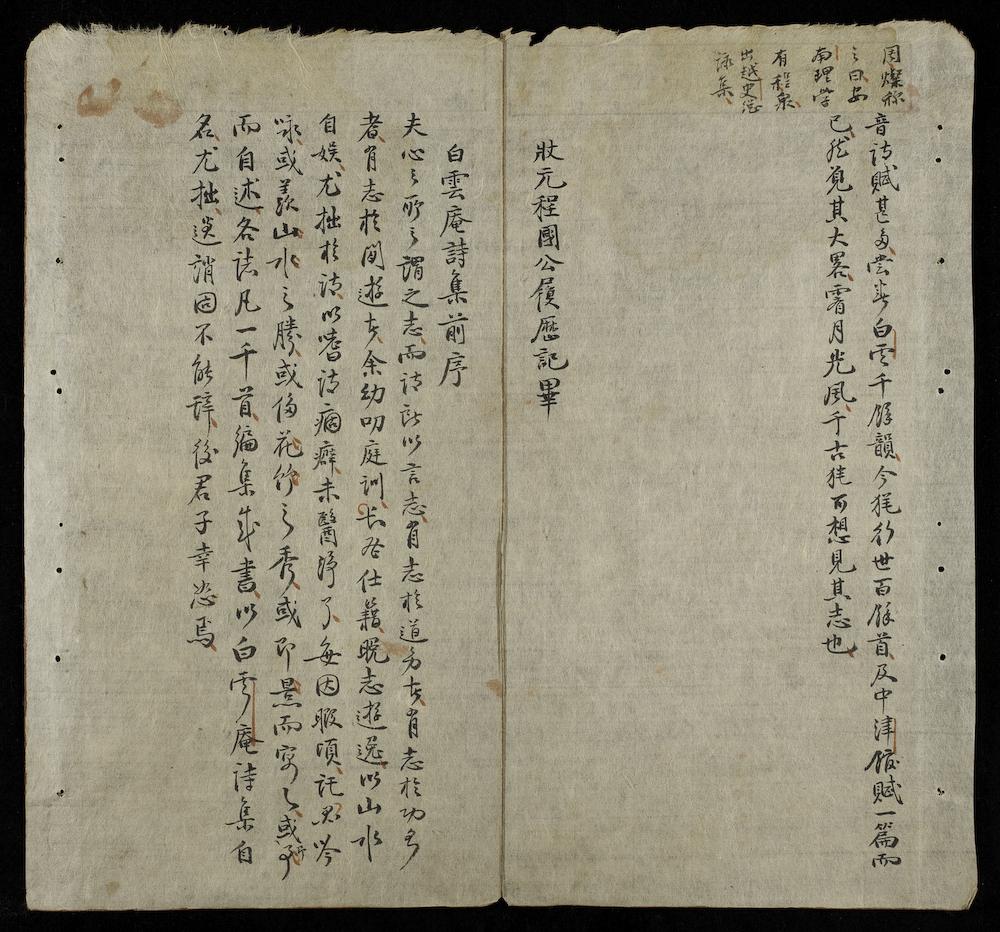 周燦称
之曰安
南理学
有程泉
出越史总
詠集
音詩賦甚多嘗著白雲千餘韻今猶行世百餘首及中津館賦一篇而
已然覓其大畧霽月光風千古猶可想見其志也
狀元程國公履歷記畢
白雲庵詩集前序
夫心之所之謂之志而詩所以言志有志於道方者有志於功名
者有志於閒遊者余幼叨庭訓長登仕籍晚志遊逸以山水
自娱尤拙於詩以嗜詩痼癖未醫得了每因暇頃託思吟
咏或美山水之勝或侈花竹之秀或即景而寓之或即事
而自述各誌凡一千首編集成書以白雲庵詩集自
名尤拙遗誚因不能辞後君子幸恕焉